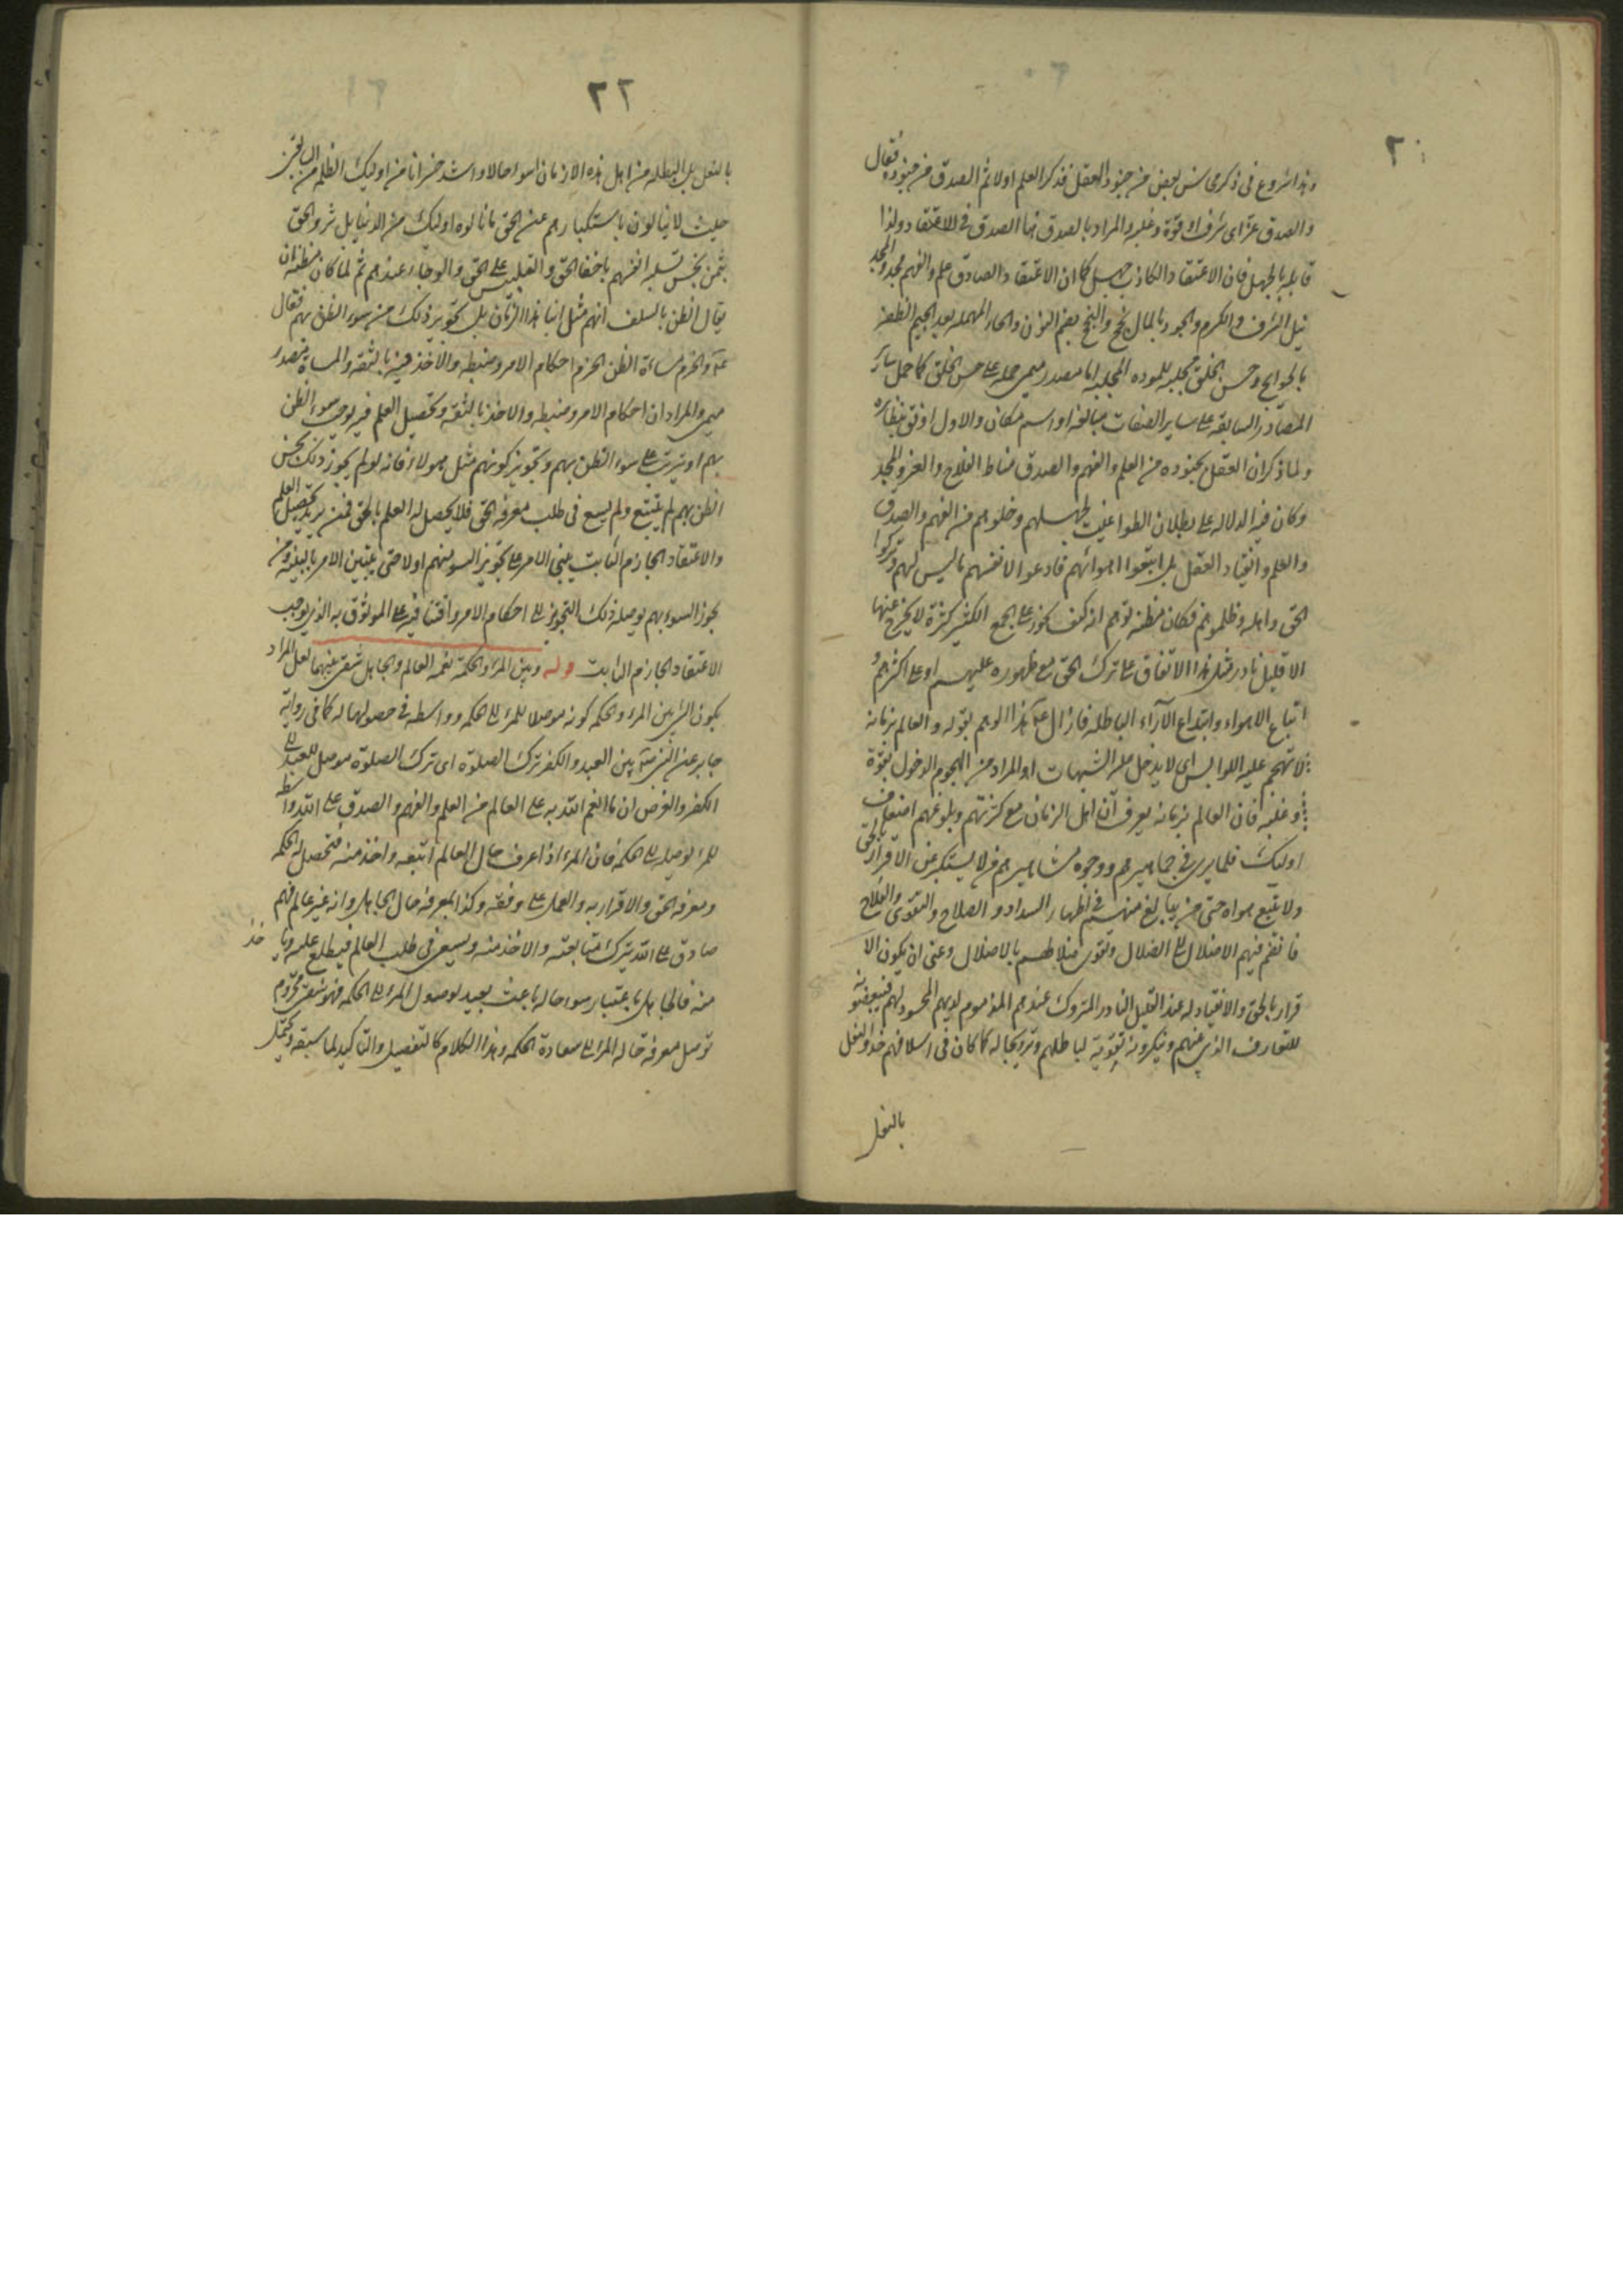 ٢٠
وهذا شروع في ذكر محاسن بعض من جنود العقل فذكر العلم اولا ثم الصدق من جنوده فقال
والصدق عز اى شرف او قوة وغلبه والمراد بالصدق هنا الصدق في الاعتقاد ولذا
قابله بالجهل فان الاعتقاد الكاذب جهل كما ان الاعتقاد الصادق علم والفهم مجد والمجد
نيل الشرف والكرم والجود بالمال نجح والنجح بضم النون والحاء المهمله بعد الجيم الظفر
بالحوايج وحسن الخلق مجلبه للموده المجلبه اما مصدر ميمى حمله على حسن الخلق كما حمل ساير
المصادر السابقه على ساير الصفات مبالغه او اسم مكان والاول اوفق بنظايره
ولما ذكر ان العقل بجنوده من العلم والفهم والصدق مناط الفلاح والعز والمجد
وكان فيه الدلاله على بطلان الطواغيت لجهلهم وخلوهم من الفهم والصدق
والعلم وانقياد العقل بل اتبعوا اهوائهم فادعوا لانفسهم ما ليس لهم وتركوا
الحق واهله وظلموهم فكان مظنه توهم انه كيف يجوز على الجمع الكثير كثرة لا يخرج عنها
الا قليل نادر مثل هذا الاتفاق على ترك الحق مع ظهوره عليهم او على اكثرهم و
اتباع الاهواء وابتداع الآراء الباطله فازال ع هذا الوهم بقوله والعالم بزمانه
لا تهجم عليه اللوابس اى لا يدخل عليه الشبهات او المراد من الهجوم الدخول بقوة
وغلبه فان العالم بزمانه يعرف ان اهل الزمان مع كثرتهم وبلوغهم اضعاف
اوليك فلما يرى في جماهيرهم ووجوه مشاهيرهم من لا يستكبر عن الاقرار بالحق
ولا يتبع هواه حتى من يبالغ منهم في اظهار السداد والصلاح والتقوى والفلاح
فانضم فيهم الاضلال الى الضلال وتقوى ضلالهم بالاضلال وعنى ان يكون الا
قرار بالحق والانقياد له عند القليل النادر المتروك عندهم المذموم لديهم المحسود لهم فيبغضونه
للتعارف الذى عنهم وينكرونه تقوية لباطلهم وترويجا له كما كان في اسلافهم حذو النعل
بالنعل
٢٢
بالنعل بل البطله من اهل هذه الازمان اسوء حالا واشد خسرانا من اوليك الظلمه السابقين
حيث لا ينالون باستكبارهم عن الحق ما ناله اوليك من الدنيا بل شروا الحق
بثمن بخس تسليه انفسهم باخفاء الحق والتلبيس على الحق والوجاه عندهم ثم لما كان مظنه ان
يقال الظن بالسلف انهم مثل ابناء هذا الزمان بل تجويز ذلك من سوء الظن بهم فقال
ع والحزم مساءة الظن الحزم احكام الامر وضبطه والاخذ فيه بالثقه والمساءة مصدر
ميمى والمراد ان احكام الامر وضبطه والاخذ بالثقه وتحصيل العلم فيه يوجب سوء الظن
بهم او يترتب على سوء الظن بهم وتجويز كونهم مثل هولاء فانه لو لم يجوز ذلك بحسن
الظن بهم لم يتتبع ولم يسع في طلب معرفه الحق فلا يحصل له العلم بالحق فمن يريد تحصيل العلم
والاعتقاد الجازم الثابت يبنى الامر على تجويز السوء منهم اولا حتى يتبين الامر بالبينه ومن
يجوز السوء بهم يوصله ذلك التجويز الى احكام الامر واقتنائه على الموثوق به الذى يوجب
الاعتقاد الجازم الثابت قوله وبين المرء والحكمة نعمه العالم والجاهل شقى بينهما لعل المراد
بكون الشيء بين المرء والحكمه كونه موصلا للمرء الى الحكمه وواسطه في حصولها له كما في روايه
جابر عن النبي ص بين العبد والكفر ترك الصلوة اى ترك الصلوة موصل للعبد الى
الكفر والغرض ان ما انعم الله به على العالم من العلم والفهم والصدق على الله واسطه
للمرء توصله الى الحكمه فان المرء اذا عرف حال العالم اتبعه واخذ منه فتحصل له الحكمه
ومعرفه الحق والاقرار به والعمل على وفقه وكذا بمعرفه حال الجاهل وانه غير عالم فهم
صادق على الله يترك متابعته والاخذ منه ويسعى في طلب العالم فيطلع عليه ويا
خذ
منه فالجاهل باعتبار سوء حاله باعث بعيد لوصول المرء الى الحكمه فهو شقى محروم
توصل معرفه حاله المرء الى سعادة الحكمه وهذا الكلام كالتفصيل والتاكيد لما سبقه ويحتمل